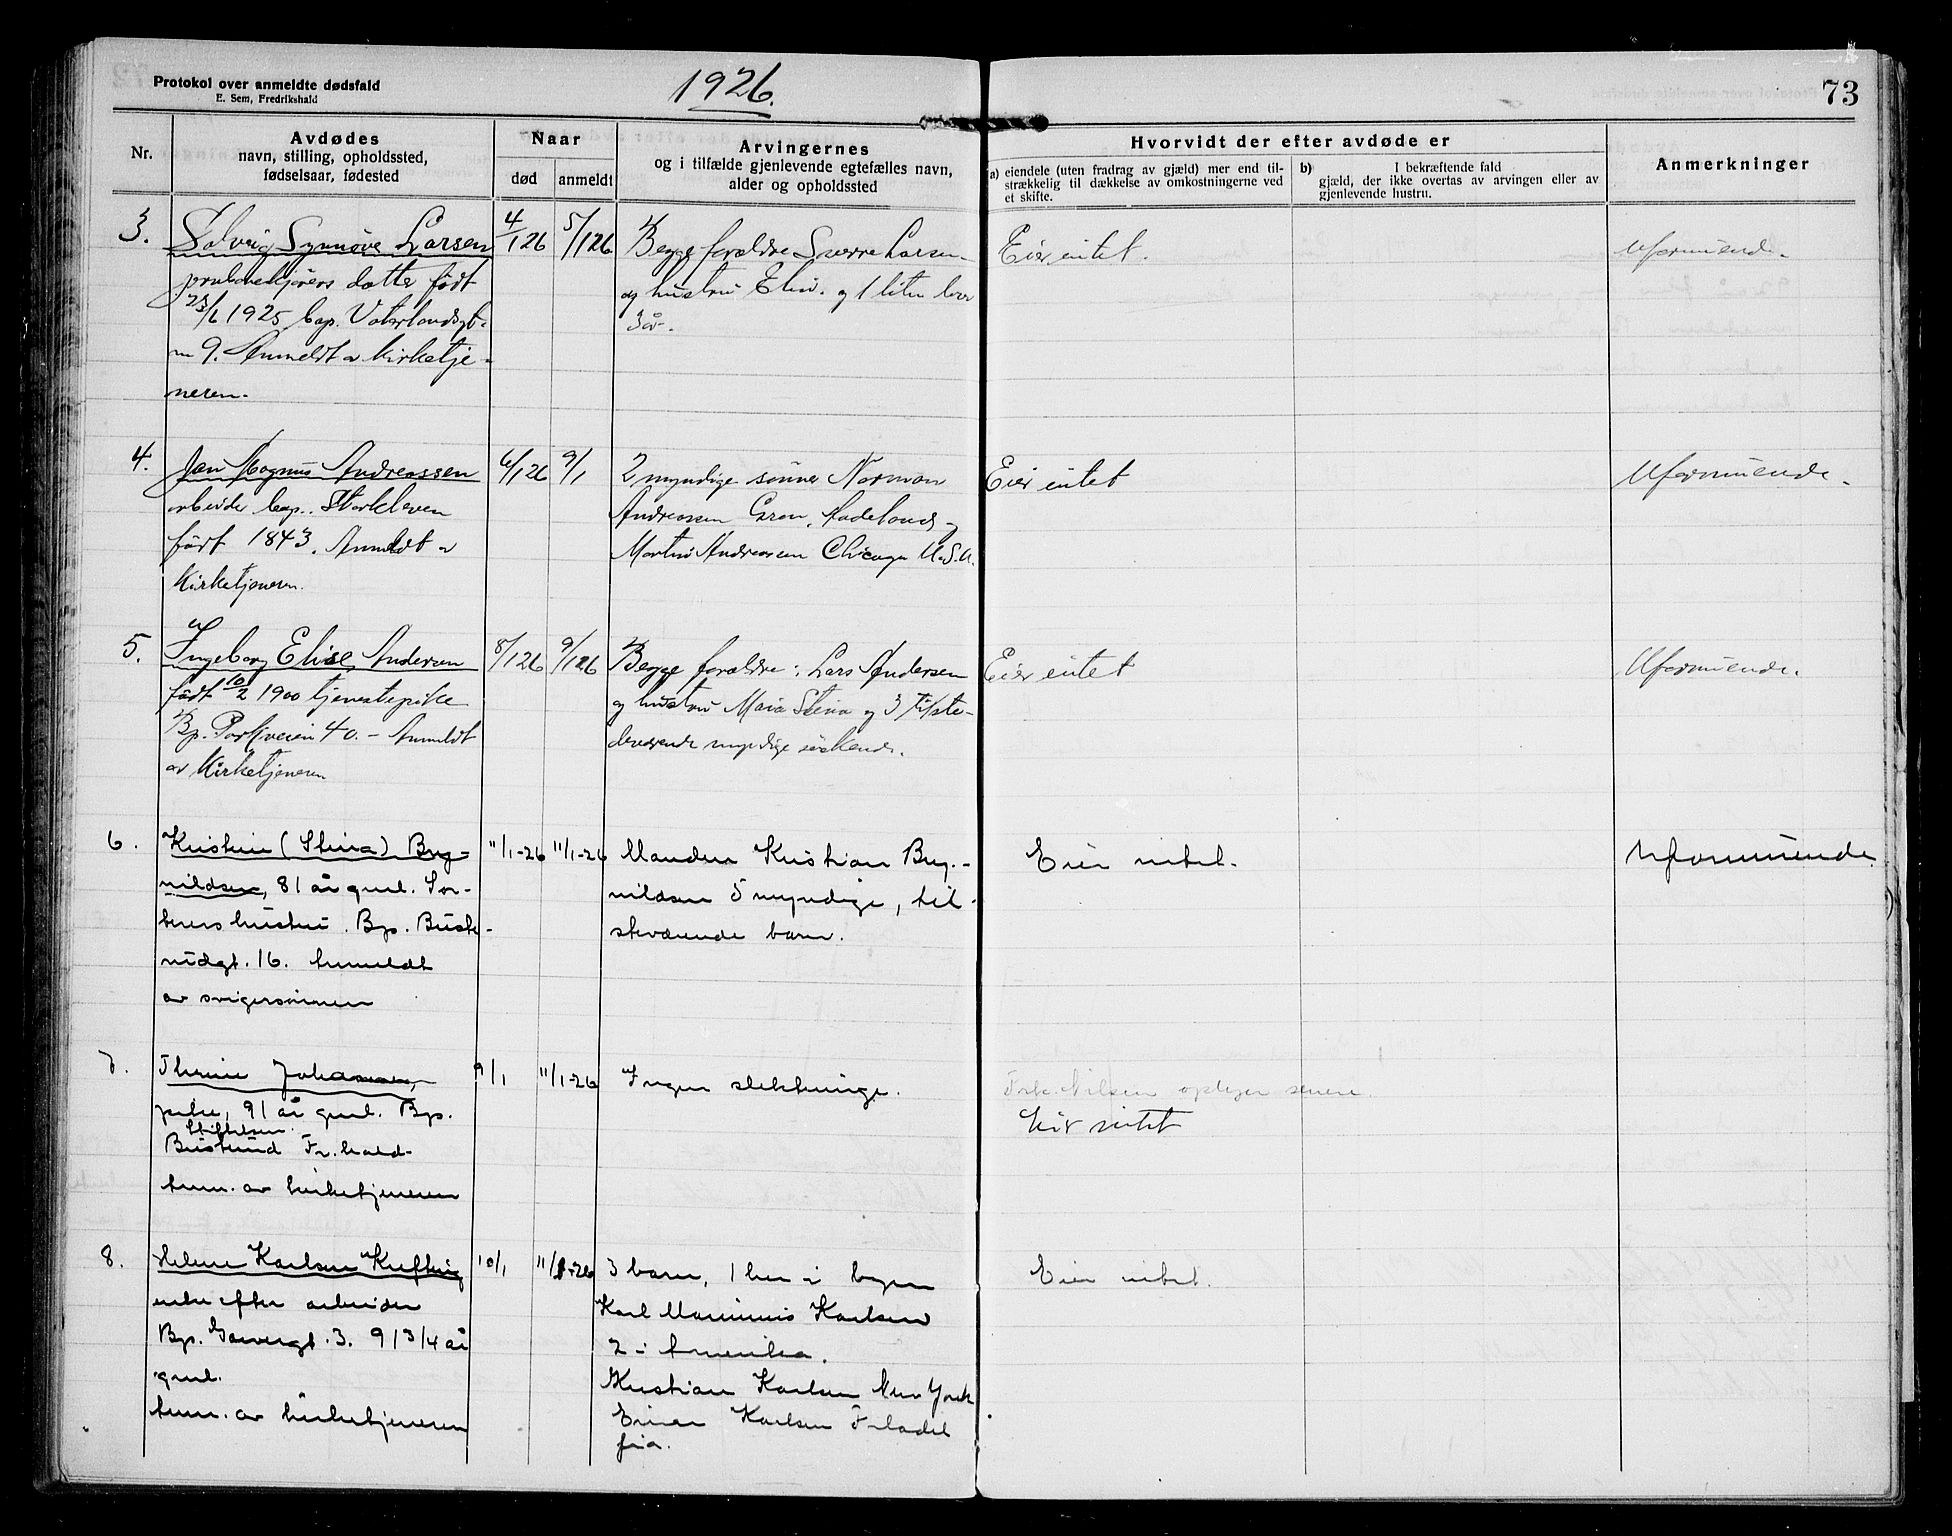 Protokol over anmeldte dødsfald
E. Sem, Fredrikshald
1926.
73
Nr.
Avdødes
navn, stilling, opholdssted,
fødselsaar, fødested
Naar
død
anmeldt
Arvingernes
og i tilfælde gjenlevende egtefælles navn,
alder og opholdssted
Hvorvidt der efter avdøde er
a) eiendele (uten fradrag av gjæld) mer end til-
strækkelig til dækkelse av omkostningerne ved
et skifte.
b) I bekræftende fald
gjæld, der ikke overtas av arvingen eller av
gjenlevende hustru.
Anmerkninger
3.
Solveig Synnøve Larsen
datter født
1925 bop. Vaterlandsgt.
9. Anmeldt av kirketje-
neren.
4/1 26
5/1 26
Begge forældre Sverre Larsen
og hustru og 1 liten bror
3 år.
Eier intet.
Uformuende.
4.
Jan Magnus Andreassen
arbeider bop.
født 1843. Anmeldt av
Kirketjeneren.
6/1 26
9/1
2 myndige sønner Norman
Andreassen Gran, Hadeland og
Martin Andreassen Chicago U.S.A.
Eier intet
Uformuende.
5.
Ingeborg Elise Andersen
født 10/2 1900 tjenestepike
Bp. Parkveien 40. - Anmeldt
av Kirketjeneren
8/1 26
9/1 26
Begge forældre: Lars Andersen
og hustru Maria Stina og 3 tilste-
deværende myndige søskende.
Eier intet
Uformuende.
6.
Kristine (Stina) Bryn-
nildsen, 81 år gml.
hustru. Bp. Buste-
rudgt. 16. Anmeldt
av svigersønnen
11/1-26
11/1-26
Manden Kristian Bryn-
nildsen 5 myndige, til-
steværende barn.
Eier intet.
Uformuende.
7.
Johansen,
pike, 91 år gml. Bp.
Stiftelsen
Busterud Fr.hald
Anm. av kirketjeneren
9/1
11/1-26
Ingen slektninge.
Frk. Nilsen opgir senere.
Eier intet
8.
Helene Karlsen
enke efter arbeider
Bp. Garvergt. 3. 91 3/4 år
gml.
Anm. av kirketjeneren
10/1
11/1-26
3 barn, 1 her i byen
Karl Karlsen
2 i Amerika.
Kristian Karlsen New York
Einar Karlsen Filadel
fia.
Eier intet.